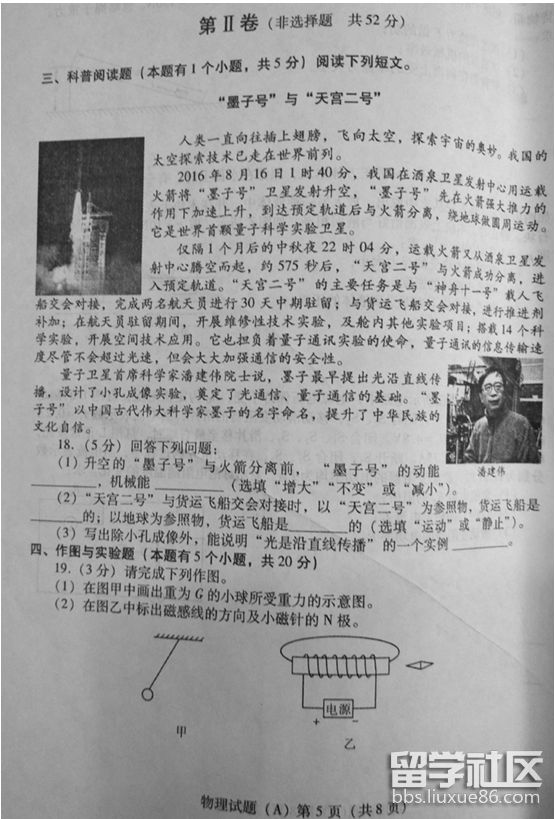 第Ⅱ卷（非选择题 共52分）
三、科普阅读题（本题有1个小题，共5分）阅读下列短文。
“墨子号”与“天宫二号”
人类一直向往插上翅膀，飞向太空，探索宇宙的奥妙。我国的
太空探索技术已走在世界前列。
2016年8月16日1时40分，我国在酒泉卫星发射中心用运载
火箭将“墨子号”卫星发射升空，“墨子号”先在火箭强大推力的
作用下加速上升，到达预定轨道后与火箭分离，绕地球做圆周运动。
它是世界首颗量子科学实验卫星。
仅隔1个月后的中秋夜22时04分，运载火箭又从酒泉卫星发
射中心腾空而起，约575秒后，“天宫二号”与火箭成功分离，进
入预定轨道。“天宫二号”的主要任务是与“神舟十一号”载人飞
船交会对接，完成两名航天员进行30天中期驻留；与货运飞船交会对接，进行推进剂
补加；在航天员驻留期间，开展维修性技术实验，及舱内其他实验项目；搭载14个科
学实验，开展空间技术应用。它也担负着量子通讯实验的使命，量子通讯的信息传输速
度尽管不会超过光速，但会大大加强通信的安全性。
量子卫星首席科学家潘建伟院士说，墨子最早提出光沿直线传
播，设计了小孔成像实验，奠定了光通信、量子通信的基础。“墨
子号”以中国古代伟大科学家墨子的名字命名，提升了中华民族的
文化自信。
潘建伟
18.（5分）回答下列问题：
（1）升空的“墨子号”与火箭分离前，“墨子号”的动能
________，机械能________（选填“增大”“不变”或“减小”）。
（2）“天宫二号”与货运飞船交会对接时，以“天宫二号”为参照物，货运飞船是
________的；以地球为参照物，货运飞船是________的（选填“运动”或“静止”）。
（3）写出除小孔成像外，能说明“光是沿直线传播”的一个实例________。
四、作图与实验题（本题有5个小题，共20分）
19.（3分）请完成下列作图。
（1）在图甲中画出重为G的小球所受重力的示意图。
（2）在图乙中标出磁感线的方向及小磁针的N极。
电源
+ −
甲
乙
物理试题（A）第5页（共8页）
留学社区
bbs.liuxue86.com